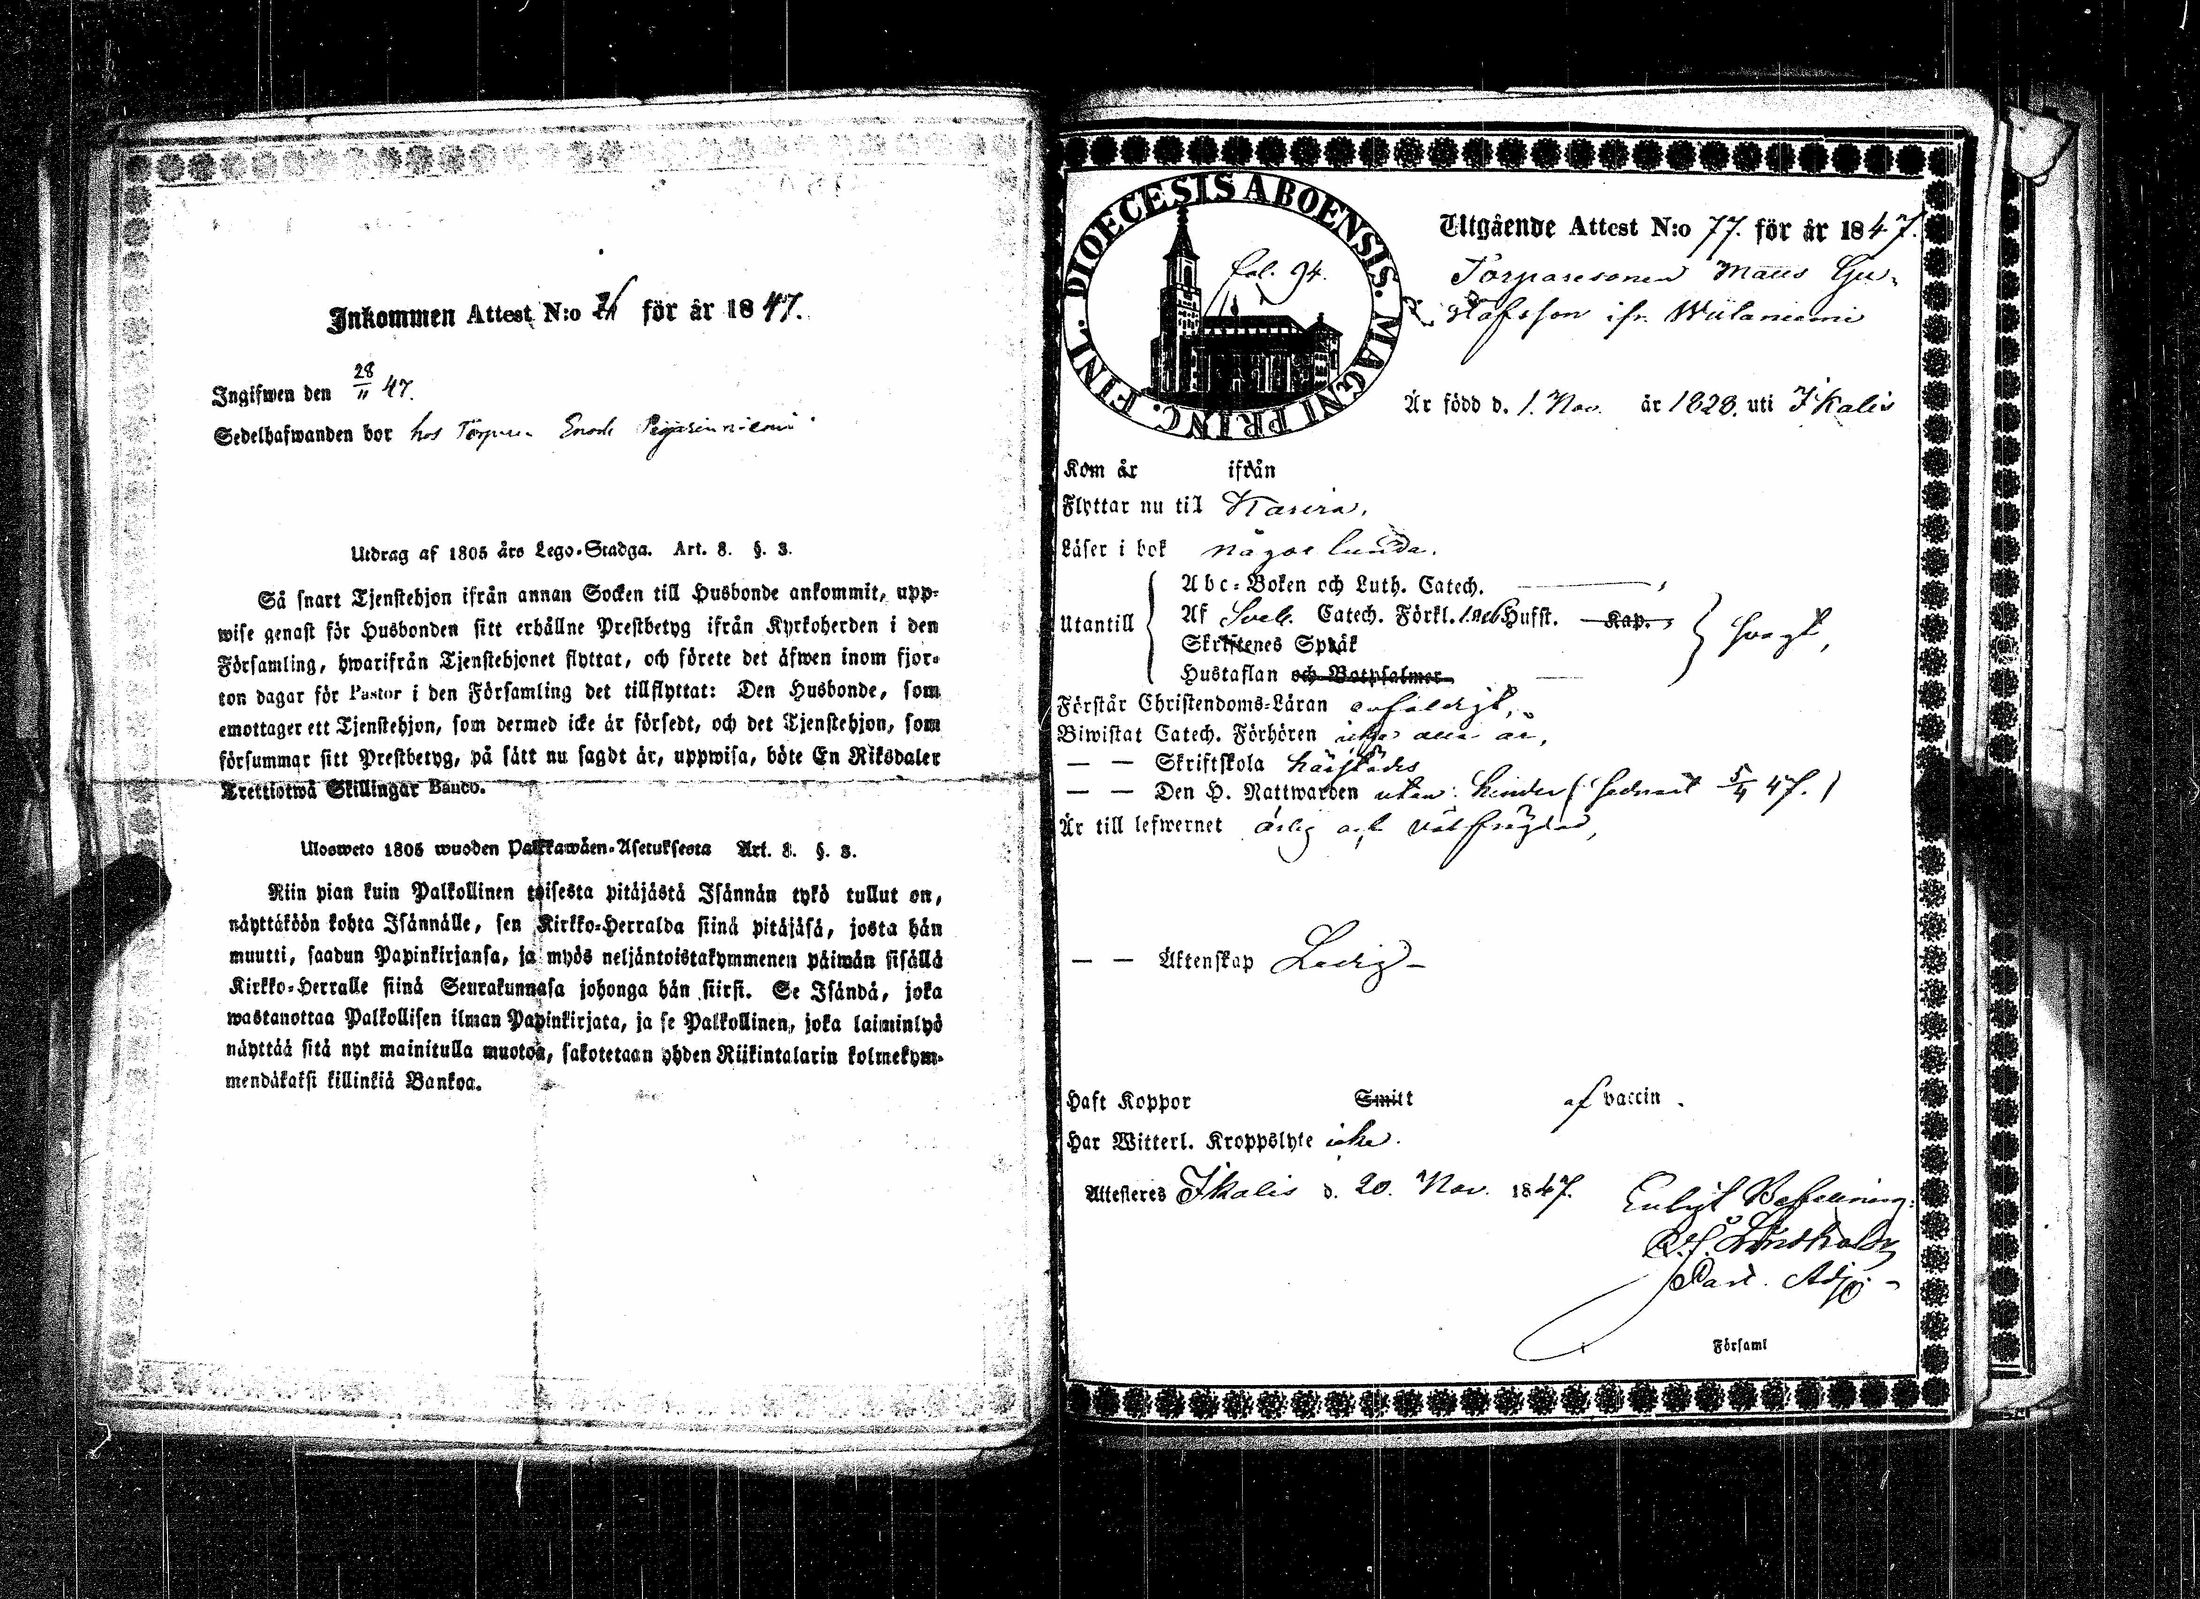 Inkommen Attest N:o för år 1847.
Ingifwen den 28/11 47.
Sedelhafwanden bor hos Torpare Enock
Utdrag af 1805 års Lego-Stadga. Art. 8. §. 3.
Så snart Tjenstehjon ifrån annan Socken till Husbonde ankommit, upp-
wise genast för Husbonden sitt erhållne Prestbetyg ifrån Kyrkoherden i den
Församling, hwarifrån Tjenstehjonet flyttat, och förete det äfwen inom fjor-
ton dagar för Pastor i den Församling det tillflyttat: Den Husbonde, som
emottager ett Tjenstehjon, som dermed icke är försedt, och det Tjenstehjon, som
försummar sitt Prestbetyg, på sätt nu sagdt är, uppwisa, böte En Riksdaler
Trettiotwå Skillingar Banco.
Ulosweto 1805 wuoden Palkkawäen-Asetuksesta Art. 8. §. 3.
Niin pian kuin Palkollinen toisesta pitäjästä Isännän tykö tullut on,
näyttäköön kohta Isännälle, sen Kirkko-Herralda siinä pitäjäsä, josta hän
muutti, saadun Papinkirjansa, ja myös neljäntoistakymmenen päiwän sisällä
Kirkko-Herralle siinä Seurakunnasa johonga hän siirsi. Se Isändä, joka
wastanottaa Palkollisen ilman Papinkirjata, ja se Palkollinen, joka laiminlyö
näyttää sitä nyt mainitulla muotoa, sakotetaan yhden Riikintalarin kolmekym-
mendäkaksi killinkiä Bankoa.
DIOECESIS ABOENSIS. MAGNI PRINC. FINL.
fol. 94.
Utgående Attest N:o 77. för år 1847.
Torparesonen Matts Gu-
stafsson ifr. Wiilaniemi
Är född d. 1. Nov. år 1828. uti Ikalis
Kom år ifrån
Flyttar nu til
Läser i bok någorlunda.
Utantill
Abc-Boken och Luth. Catech.
Af Sveb. Catech. Förkl. Hufst. Kap.
Skriftenes Språk
Hustaflan och Botpsalmer
svagt,
Förstår Christendoms-Läran enfaldigt,
Biwistat Catech. Förhören alla år,
— — Skriftskola härstädes
— — Den H. Nattwarden utan hinder (sednast 5/9 47.)
Är till lefwernet ärlig och välfrägdad,
— — Äktenskap Ledig
Haft Koppor Smitt af vaccin.
Har Witterl. Kroppslyte icke.
Attesteras Ikalis d. 20. Nov. 1847.
Enligt Befullning:
Past. Adj.
Församl